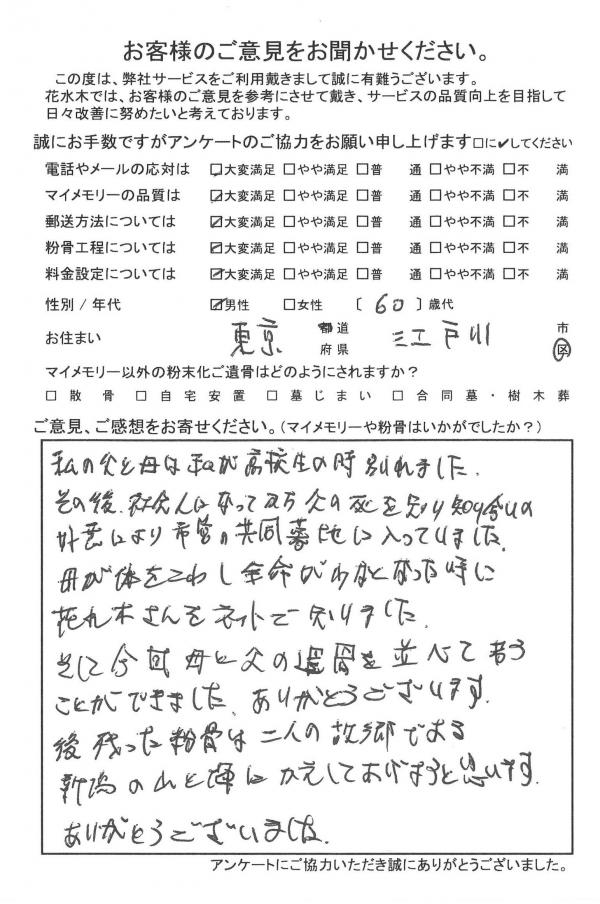 お客様のご意見をお聞かせください。
この度は、弊社サービスをご利用戴きまして誠に有難うございます。
花水木では、お客様のご意見を参考にさせて戴き、サービスの品質向上を目指して
日々改善に努めたいと考えております。
誠にお手数ですがアンケートのご協力をお願い申し上げます□に✔してください
電話やメールの応対は ☑大変満足 □やや満足 □普 通 □やや不満 □不 満
マイメモリーの品質は ☑大変満足 □やや満足 □普 通 □やや不満 □不 満
郵送方法については ☑大変満足 □やや満足 □普 通 □やや不満 □不 満
粉骨工程については ☑大変満足 □やや満足 □普 通 □やや不満 □不 満
料金設定については ☑大変満足 □やや満足 □普 通 □やや不満 □不 満
性別 / 年代 ☑男性 □女性 〔 60 〕歳代
お住まい 東京 都道府県 江戸川 市区
マイメモリー以外の粉末化ご遺骨はどのようにされますか？
□ 散 骨 □ 自 宅 安 置 □ 墓 じ ま い □ 合 同 墓 ・ 樹 木 葬
ご意見、ご感想をお寄せください。(マイメモリーや粉骨はいかがでしたか？)
私の父と母は私が高校生の時別れました。
その後、社会人になってから父の死を知り知り合いの
により市営の共同墓地に入っていました。
母が体をこわし余命がわずかとなった時に
花水木さんをネットで知りました。
そして今回母と父の遺骨を並べて
ことができました。ありがとうございます。
後残った粉骨は二人の故郷である
新潟の山と海にかえしてあげようと思います。
ありがとうございました。
アンケートにご協力いただき誠にありがとうございました。